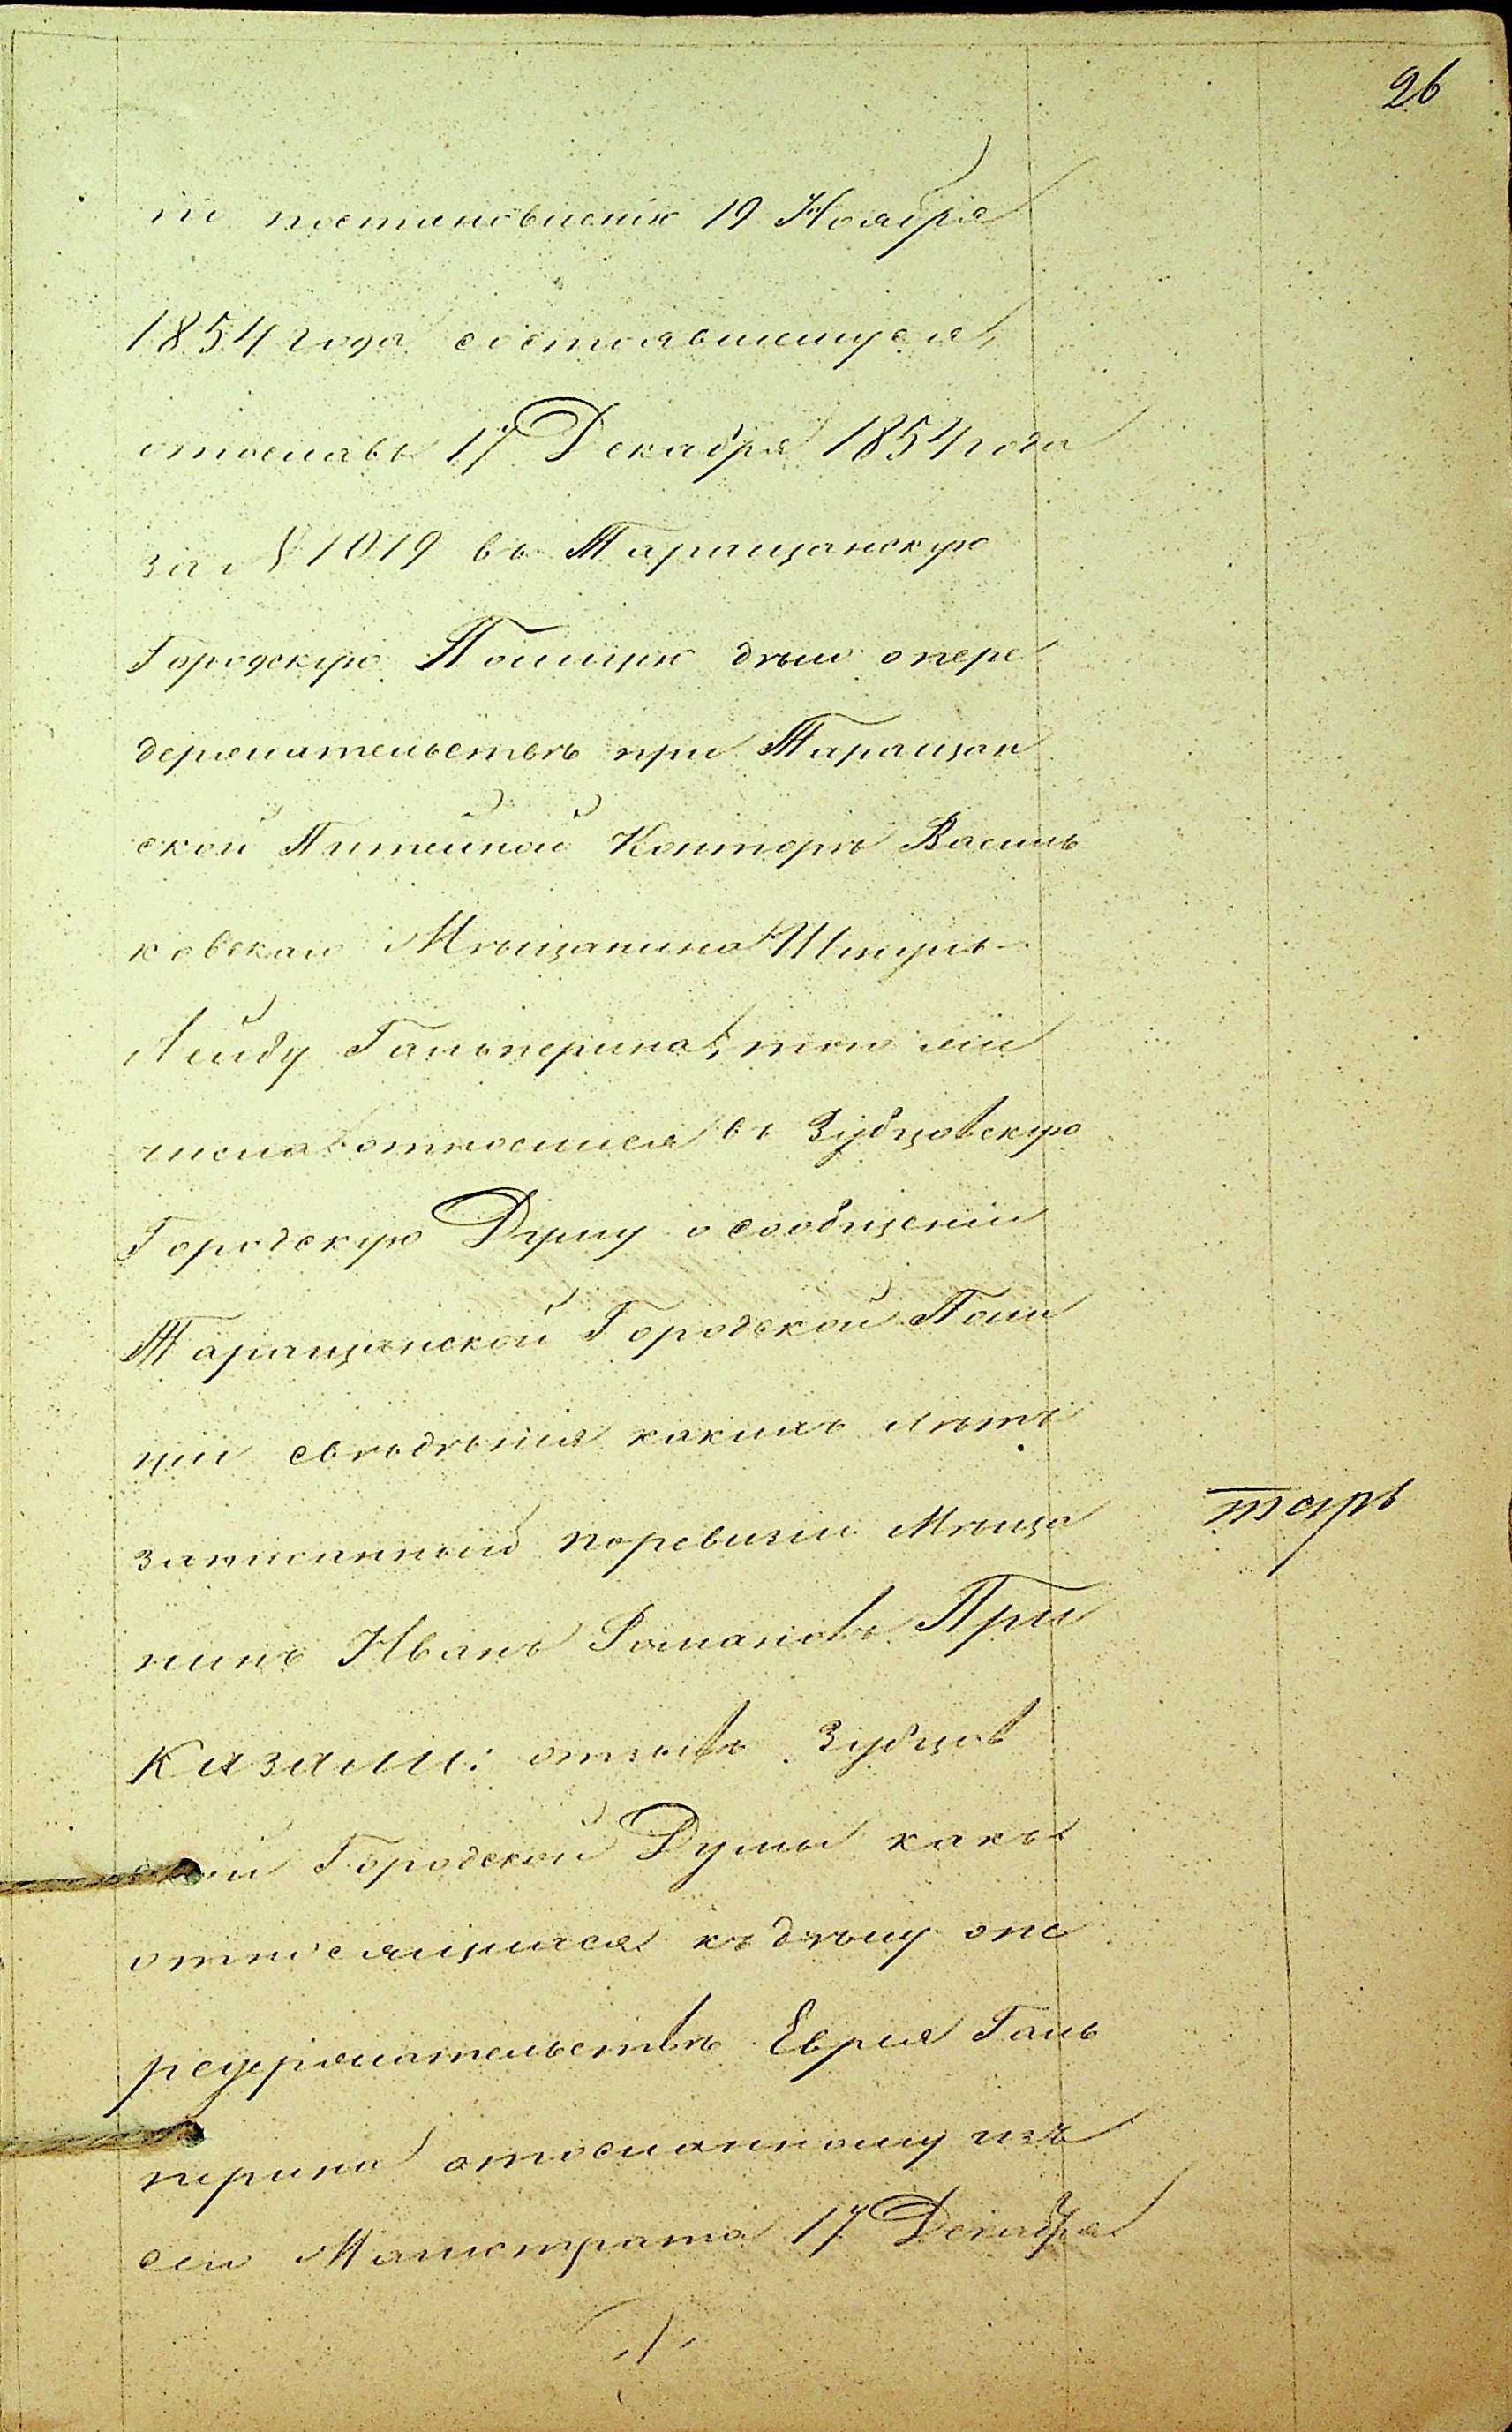 26
по постановленію 19 Ноября
1854 года состоявшемуся,
отославъ 17 Декабря 1854 года
за № 1019 въ Таращанскую
Городскую Полицію дѣло о пере
держательствѣ при Таращан
ской Питейной Конторѣ Василь
ковскаго Мѣщанина Шмуль
Лейду Гальперина, того же
числа относился въ Зубцовскую
Городскую Думу о сообщеніи
Таращанской Городской Поли
ціи свѣдѣнія какихъ лѣтъ
записанный по ревизіи Мѣща
нинъ Иванъ Романовъ При
казали: отзывъ Зубцов
ской Городской Думы какъ
относящійся къ дѣлу о пе
редержательствѣ Еврея Галь
перина отосланному изъ
сего Магистрата 17 Декабря
тарь